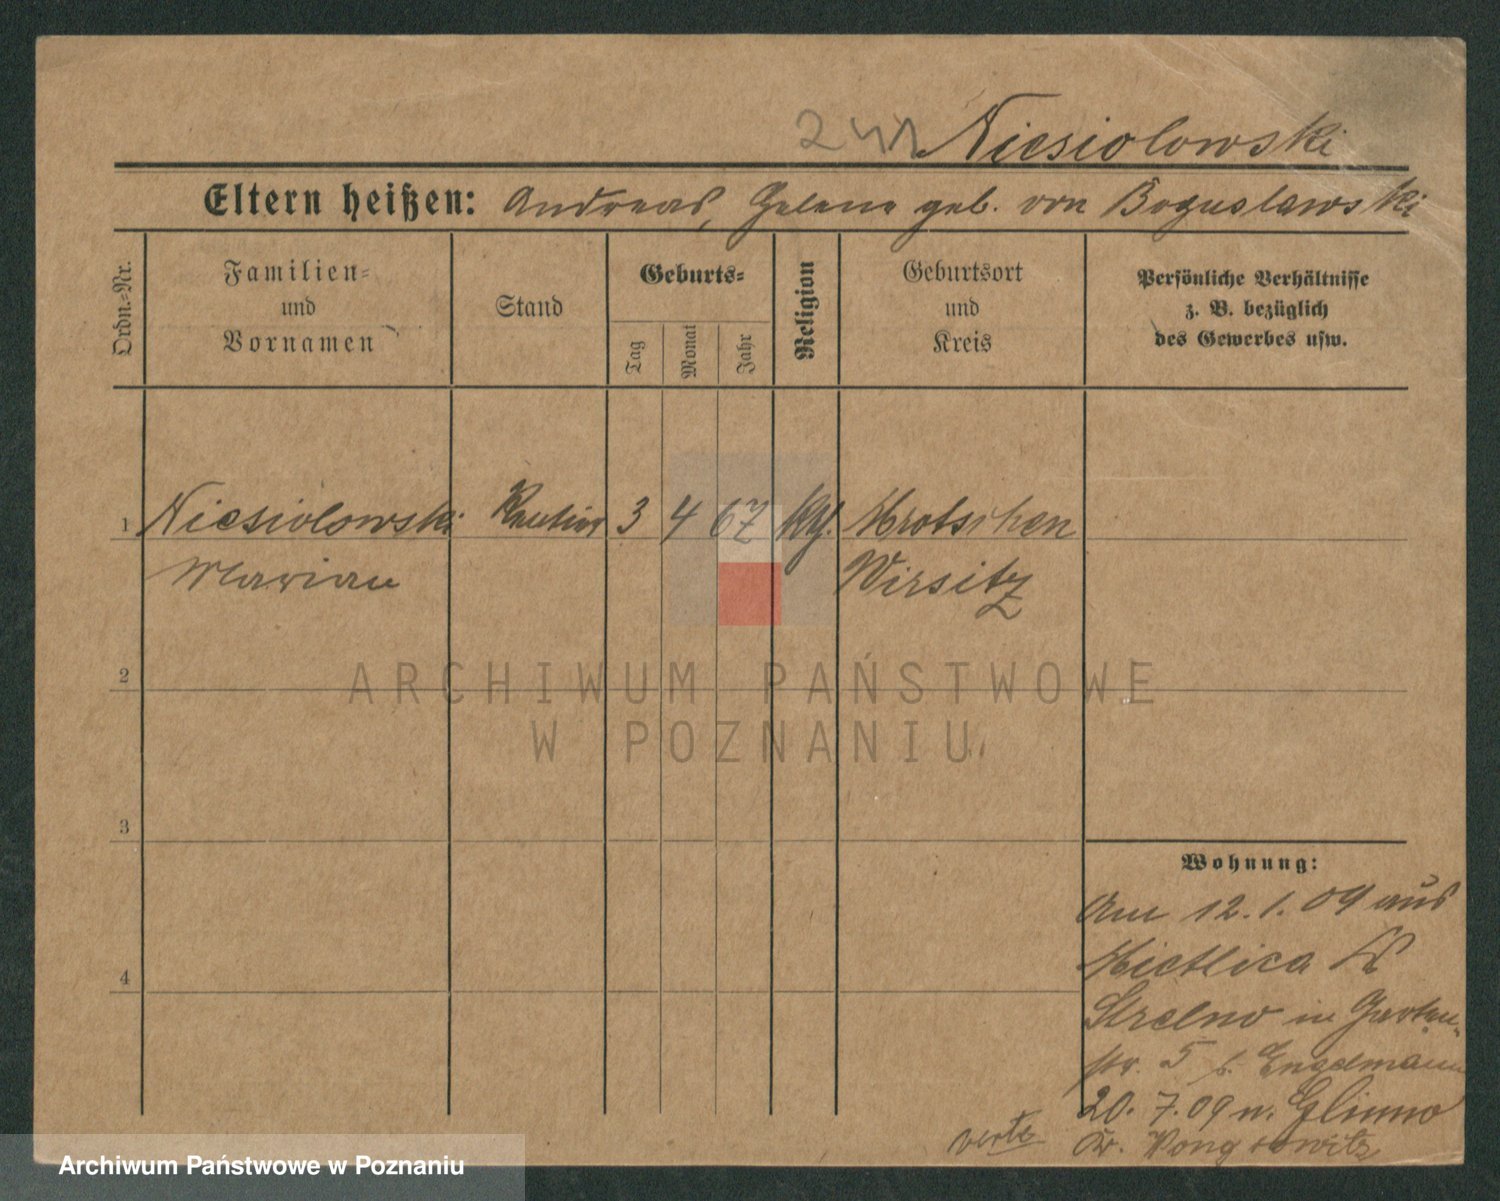 241 Niesiolowski
Eltern heißen: Andreas, Helene geb. von Boguslawski
Ordn.=Nr.
Familien=
und
Vornamen
Stand
Geburts=
Tag
Monat
Jahr
Religion
Geburtsort
und
Kreis
Persönliche Verhältnisse
z. B. bezüglich
des Gewerbes usw.
1 Niesiolowski Rentier 3 4 67 kth. Mrotschen
Marian Wirsitz
2
3
4
Wohnung:
Am 12.1.09 aus
Mietlica Kr
Strelno in Garten-
str. 5 b. Engelmann
20.7.09 n. Glinno
Kr. Wongrowitz
verte
ARCHIWUM PAŃSTWOWE
W POZNANIU
Archiwum Państwowe w Poznaniu